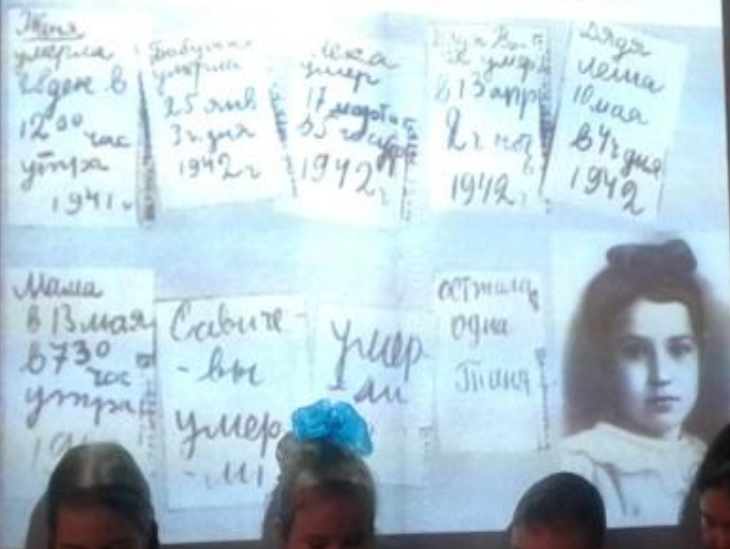 Женя
умерла
28 ден в
12 00 час
утра
1941 г
Бабушка
умерла
25 янв
3 ч. дня
1942 г
Лека
умер
17 марта в
в 5 час утр
1942 г
Дядя Вася
умер
в 13 апр
2 ч ноч
1942 г
Дядя
Леша
10 мая
в 4 ч дня
1942
Мама
в 13 мая
в 7 30
час
утра
Савиче-
-вы
умер
-ли
умер
-ли
осталась
одна
Таня